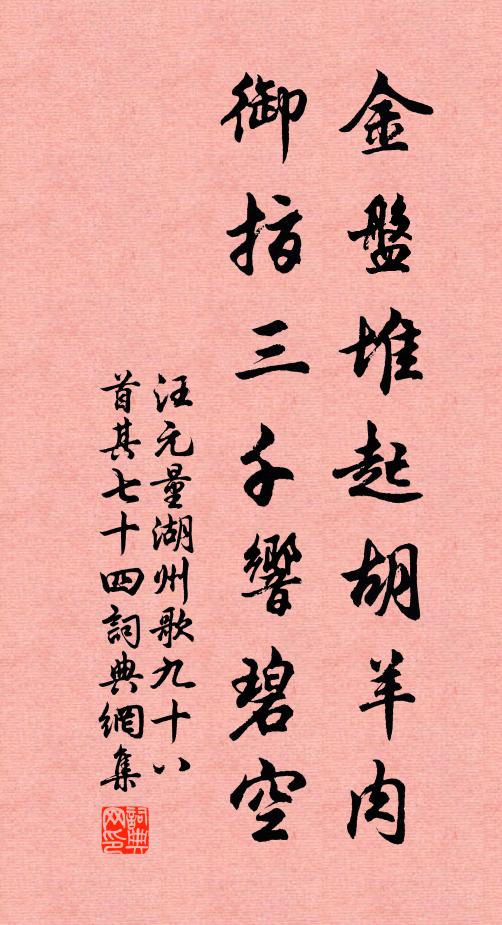 金盤堆起胡羊肉
御指三千響碧空
汪元量湖州歌九十八
首其七十四詞典網集
詞典
网印